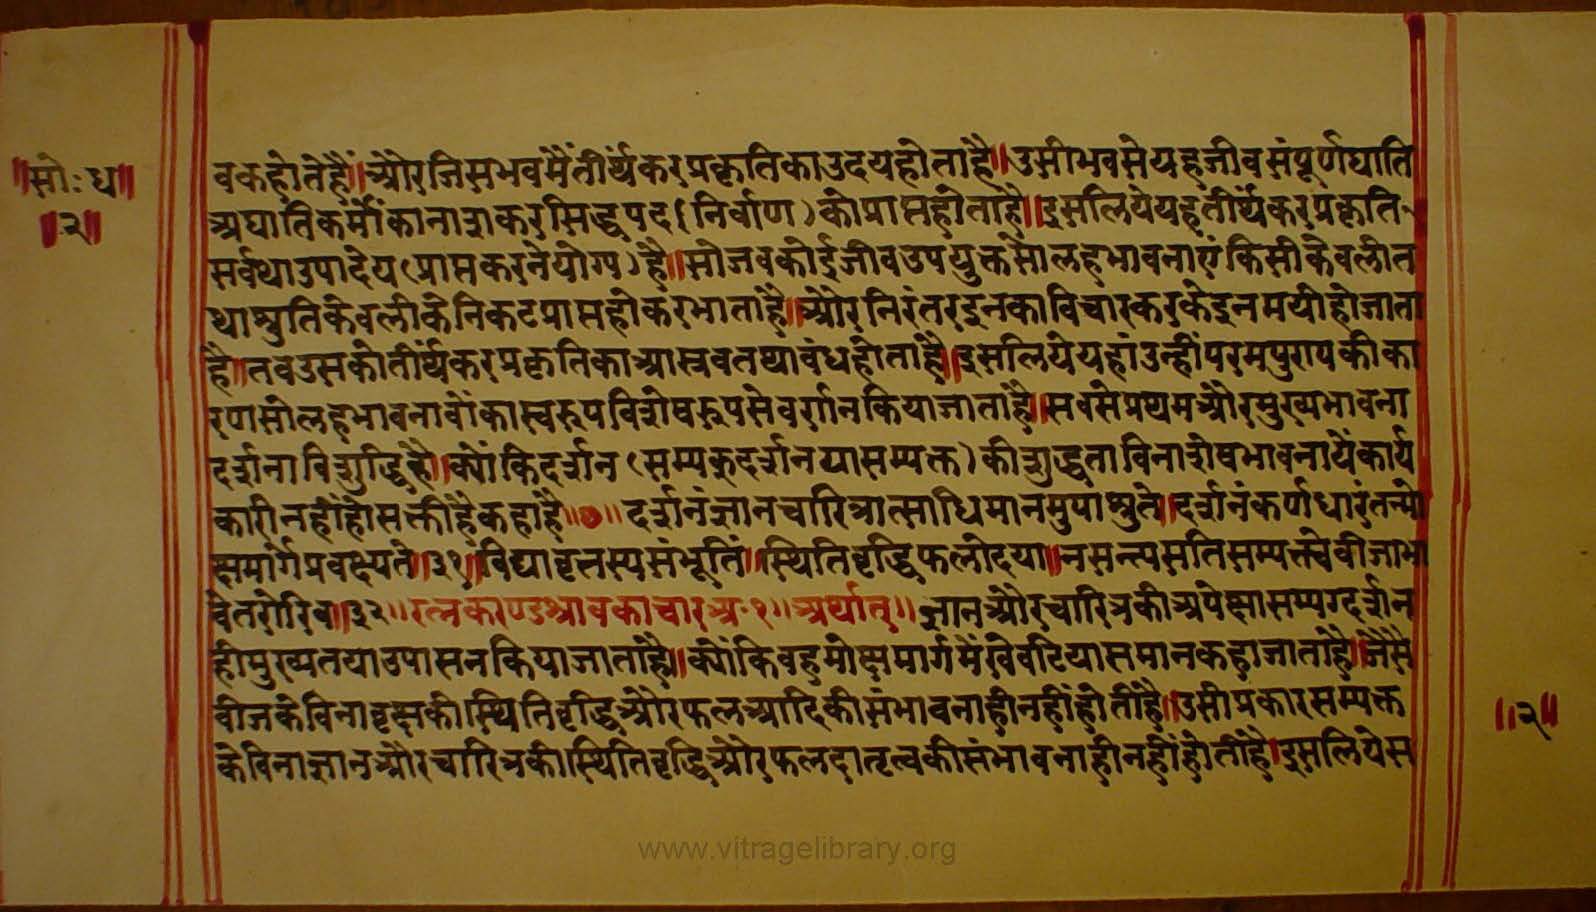 ॥सोः ध॥
॥२॥
वकहोतेहैं॥औरजिसभवमेंतीर्थंकरप्रकृतिकाउदयहोताहै॥उसीभवसेयहजीवसंपूर्णघाति
अघातिकर्मोंकानाशकरसिद्धपद(निर्वाण)कोप्राप्तहोताहै॥इसलियेयहतीर्थंकरप्रकृति
सर्वथाउपादेय(प्राप्तकरनेयोग्य)है॥सोजबकोईजीवउपयुक्तसोलहभावनाएंकिसीकेवलीत
थाश्रुतिकेवलीकेनिकटप्राप्तहोकरभाताहै॥औरनिरंतरइनकाविचारकरकेइनमयीहोजाता
है॥तबउसकोतीर्थंकरप्रकृतिकाआस्त्रवतथाबंधहोताहै॥इसलियेयहांउन्हींपरमपुरापकीका
रणसोलहभावनावोंकास्वरुपविशेषरुपसेवर्णनकियाजाताहै॥सबसेप्रथमऔरमुख्यभावना
दर्शनाविशुद्धिहै॥क्योंकिदर्शन(सम्यक्दर्शनयासम्यक्त)कीशुद्धताविनाशेषभावनायेंकार्य
कारीनहींहोसक्तीहैंकहाहै॥७॥दर्शनंज्ञानचारित्रात्साधिमानमुपाश्नुते॥दर्शनंकर्णधारंतन्मो
क्षमार्गेप्रवक्ष्यते॥३१॥विद्यावृत्तस्यसंभूतिं॥स्थितिवृद्धिफलोदया॥नसन्त्यसतिसम्यक्त्वेबीजाभा
वेतरोरिव॥३२॥रत्नकरण्डश्रावकाचारअ॰१॥अर्थात्॥ज्ञानऔरचारित्रकीअपेक्षासम्यग्दर्शन
हीमुख्यतयाउपासनकियाजाताहै॥क्योंकिवहमोक्षमार्गमेंखेवटियासमानकहाजाताहै॥जैसे
बीजकेविनावृक्षकीस्थितिवृद्धिऔरफलआदिकीसंभावनाहीनहींहोतीहै॥उसीप्रकारसम्यक्त
केविनाज्ञानऔरचारित्रकीस्थितिवृद्धिऔरफलदातृत्वकीसंभावनाहीनहींहोतीहै॥इसलियेस
॥२॥
www.vitragelibrary.org